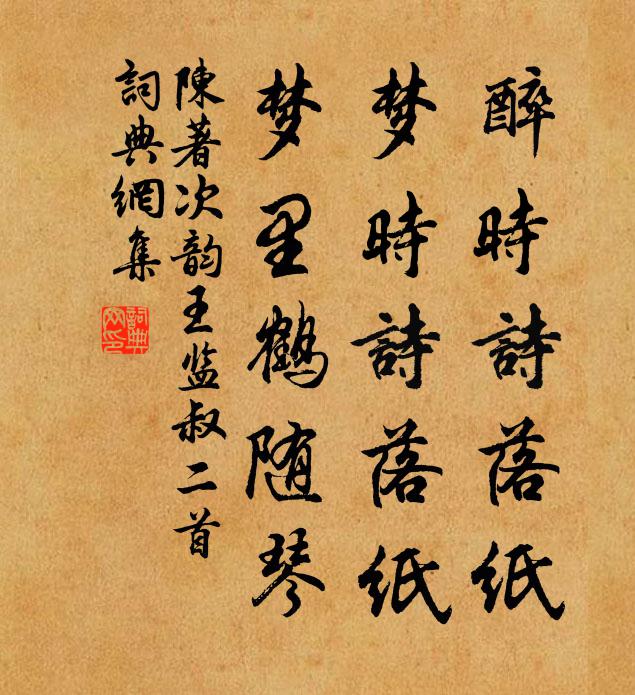 醉時詩落纸
梦時詩落纸
梦里鶴随琴
陳著次韵王监叔二首
詞典網集
詞典網印